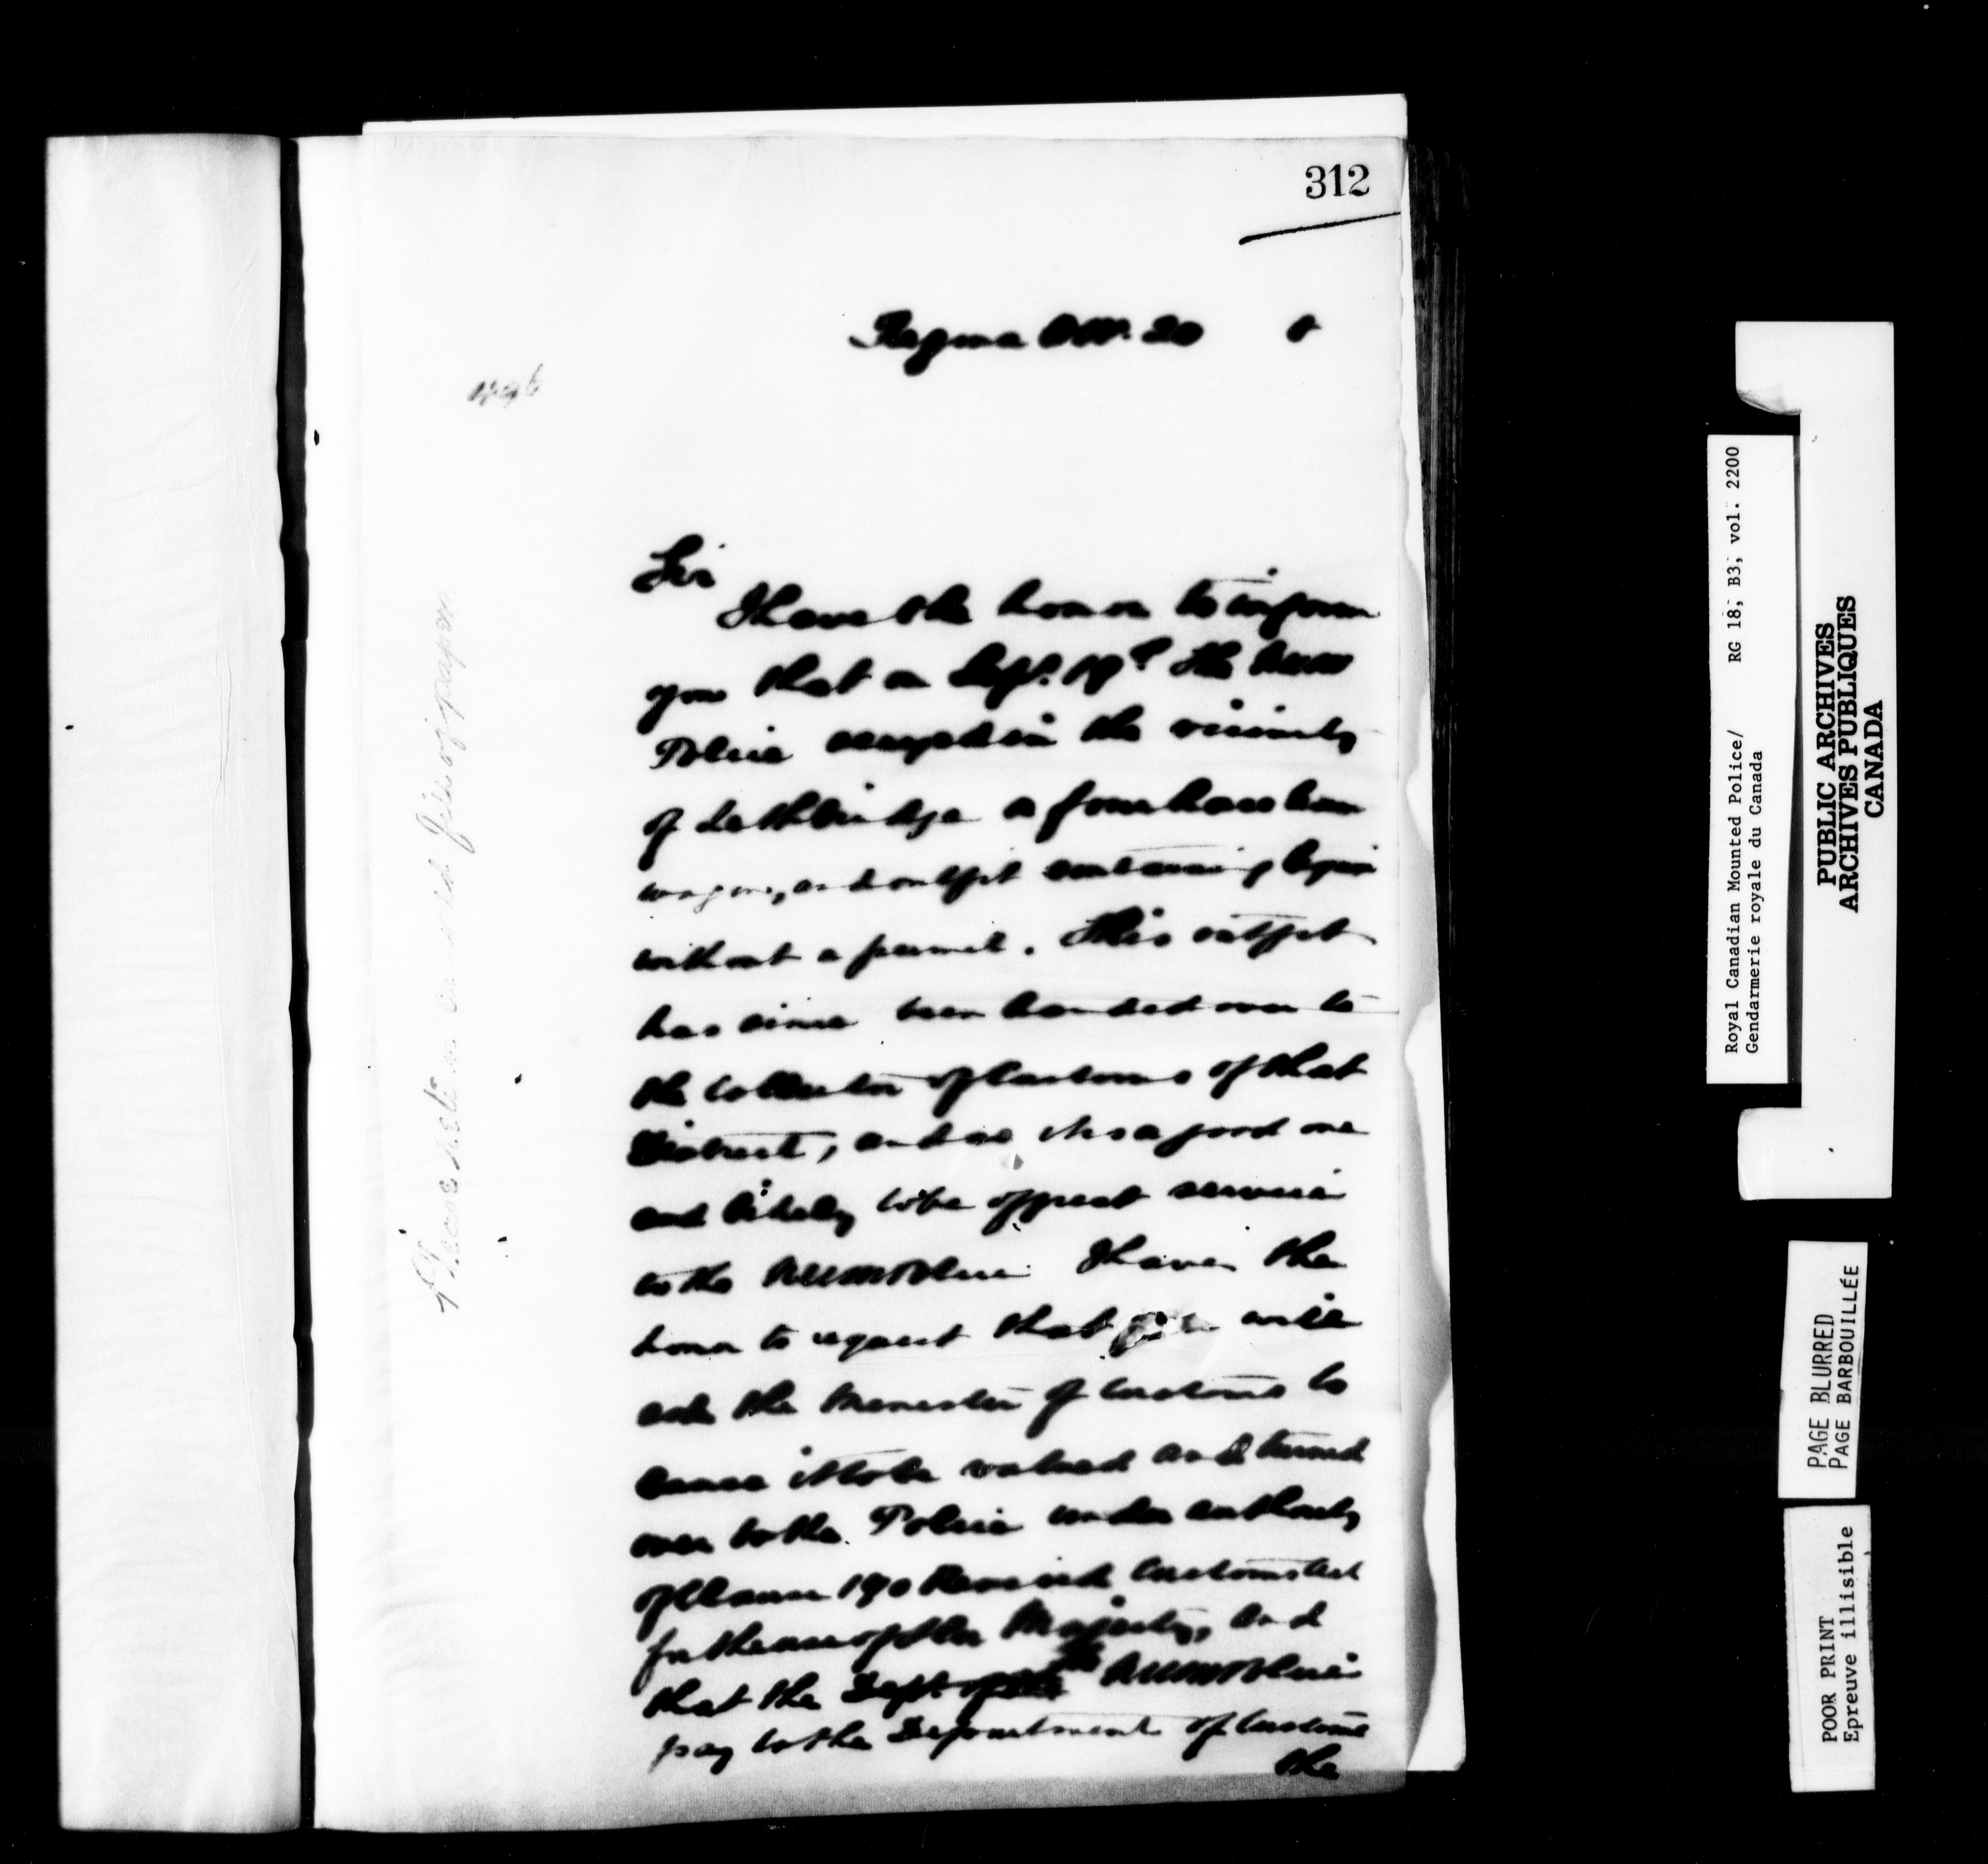 312
Regina Oct. 20
Sir
I have the honor to inform
you that on Sept. 19th the NWM
Police seized in the vicinity
of Lethbridge a four horse team
wagons, and outfit containing liquor
without a permit. This outfit
has since been handed over to
the Collector of Customs of that
District, and as it is a good one
and likely to be of great service
to the NWM Police I have the
honor to request that you will
ask the Minister of Customs to
cause it to be valued and turned
over to the Police under authority
of Clause 190 Revised Customs Act
for the use of Her Majesty, and
that the Dept. of the NWM Police
pay to the Department of Customs
the
file of papers
Royal Canadian Mounted Police/ RG 18, B3, vol. 2200
Gendarmerie royale du Canada
PUBLIC ARCHIVES
ARCHIVES PUBLIQUES
CANADA
PAGE BLURRED
PAGE BARBOUILLÉE
POOR PRINT
Epreuve illisible